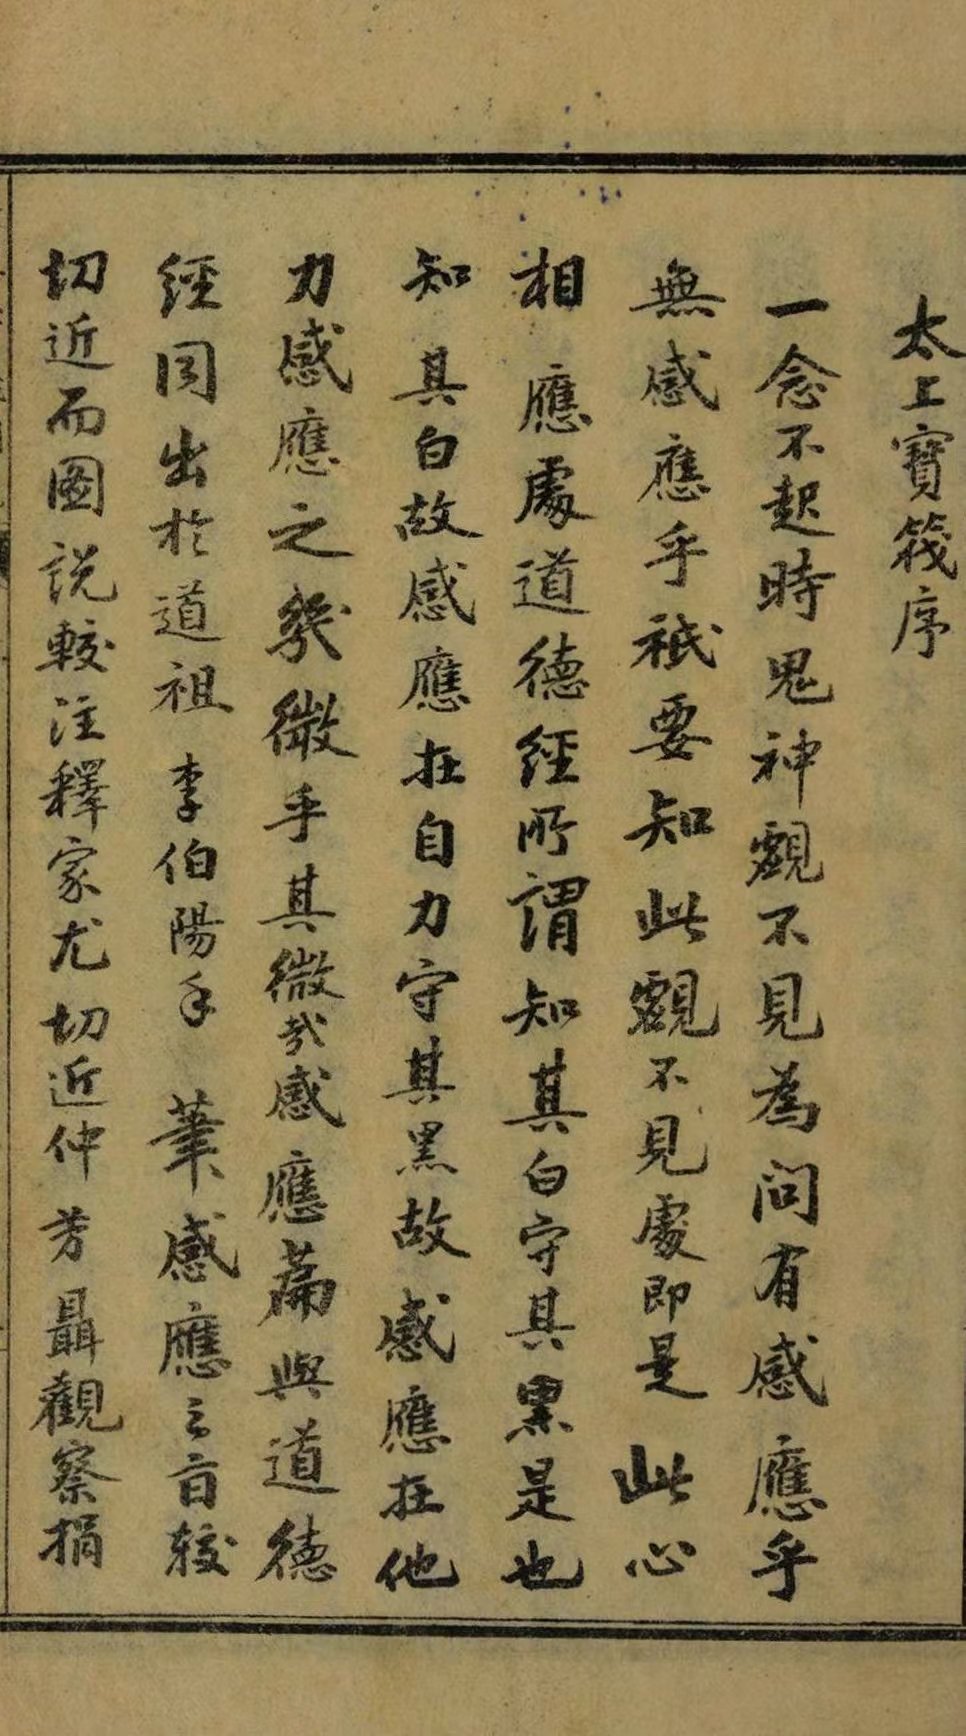 太上寶筏序
一念不起時鬼神覷不見為問有感應乎
無感應乎祇要知此覷不見處即是此心
相應處道德經所謂知其白守其黑是也
知其白故感應在自力守其黑故感應在他
力感應之幾微乎其微哉感應篇與道德
經同出於道祖李伯陽手筆感應之旨較
切近而圖說較注釋家尤切近仲芳聶觀察捐